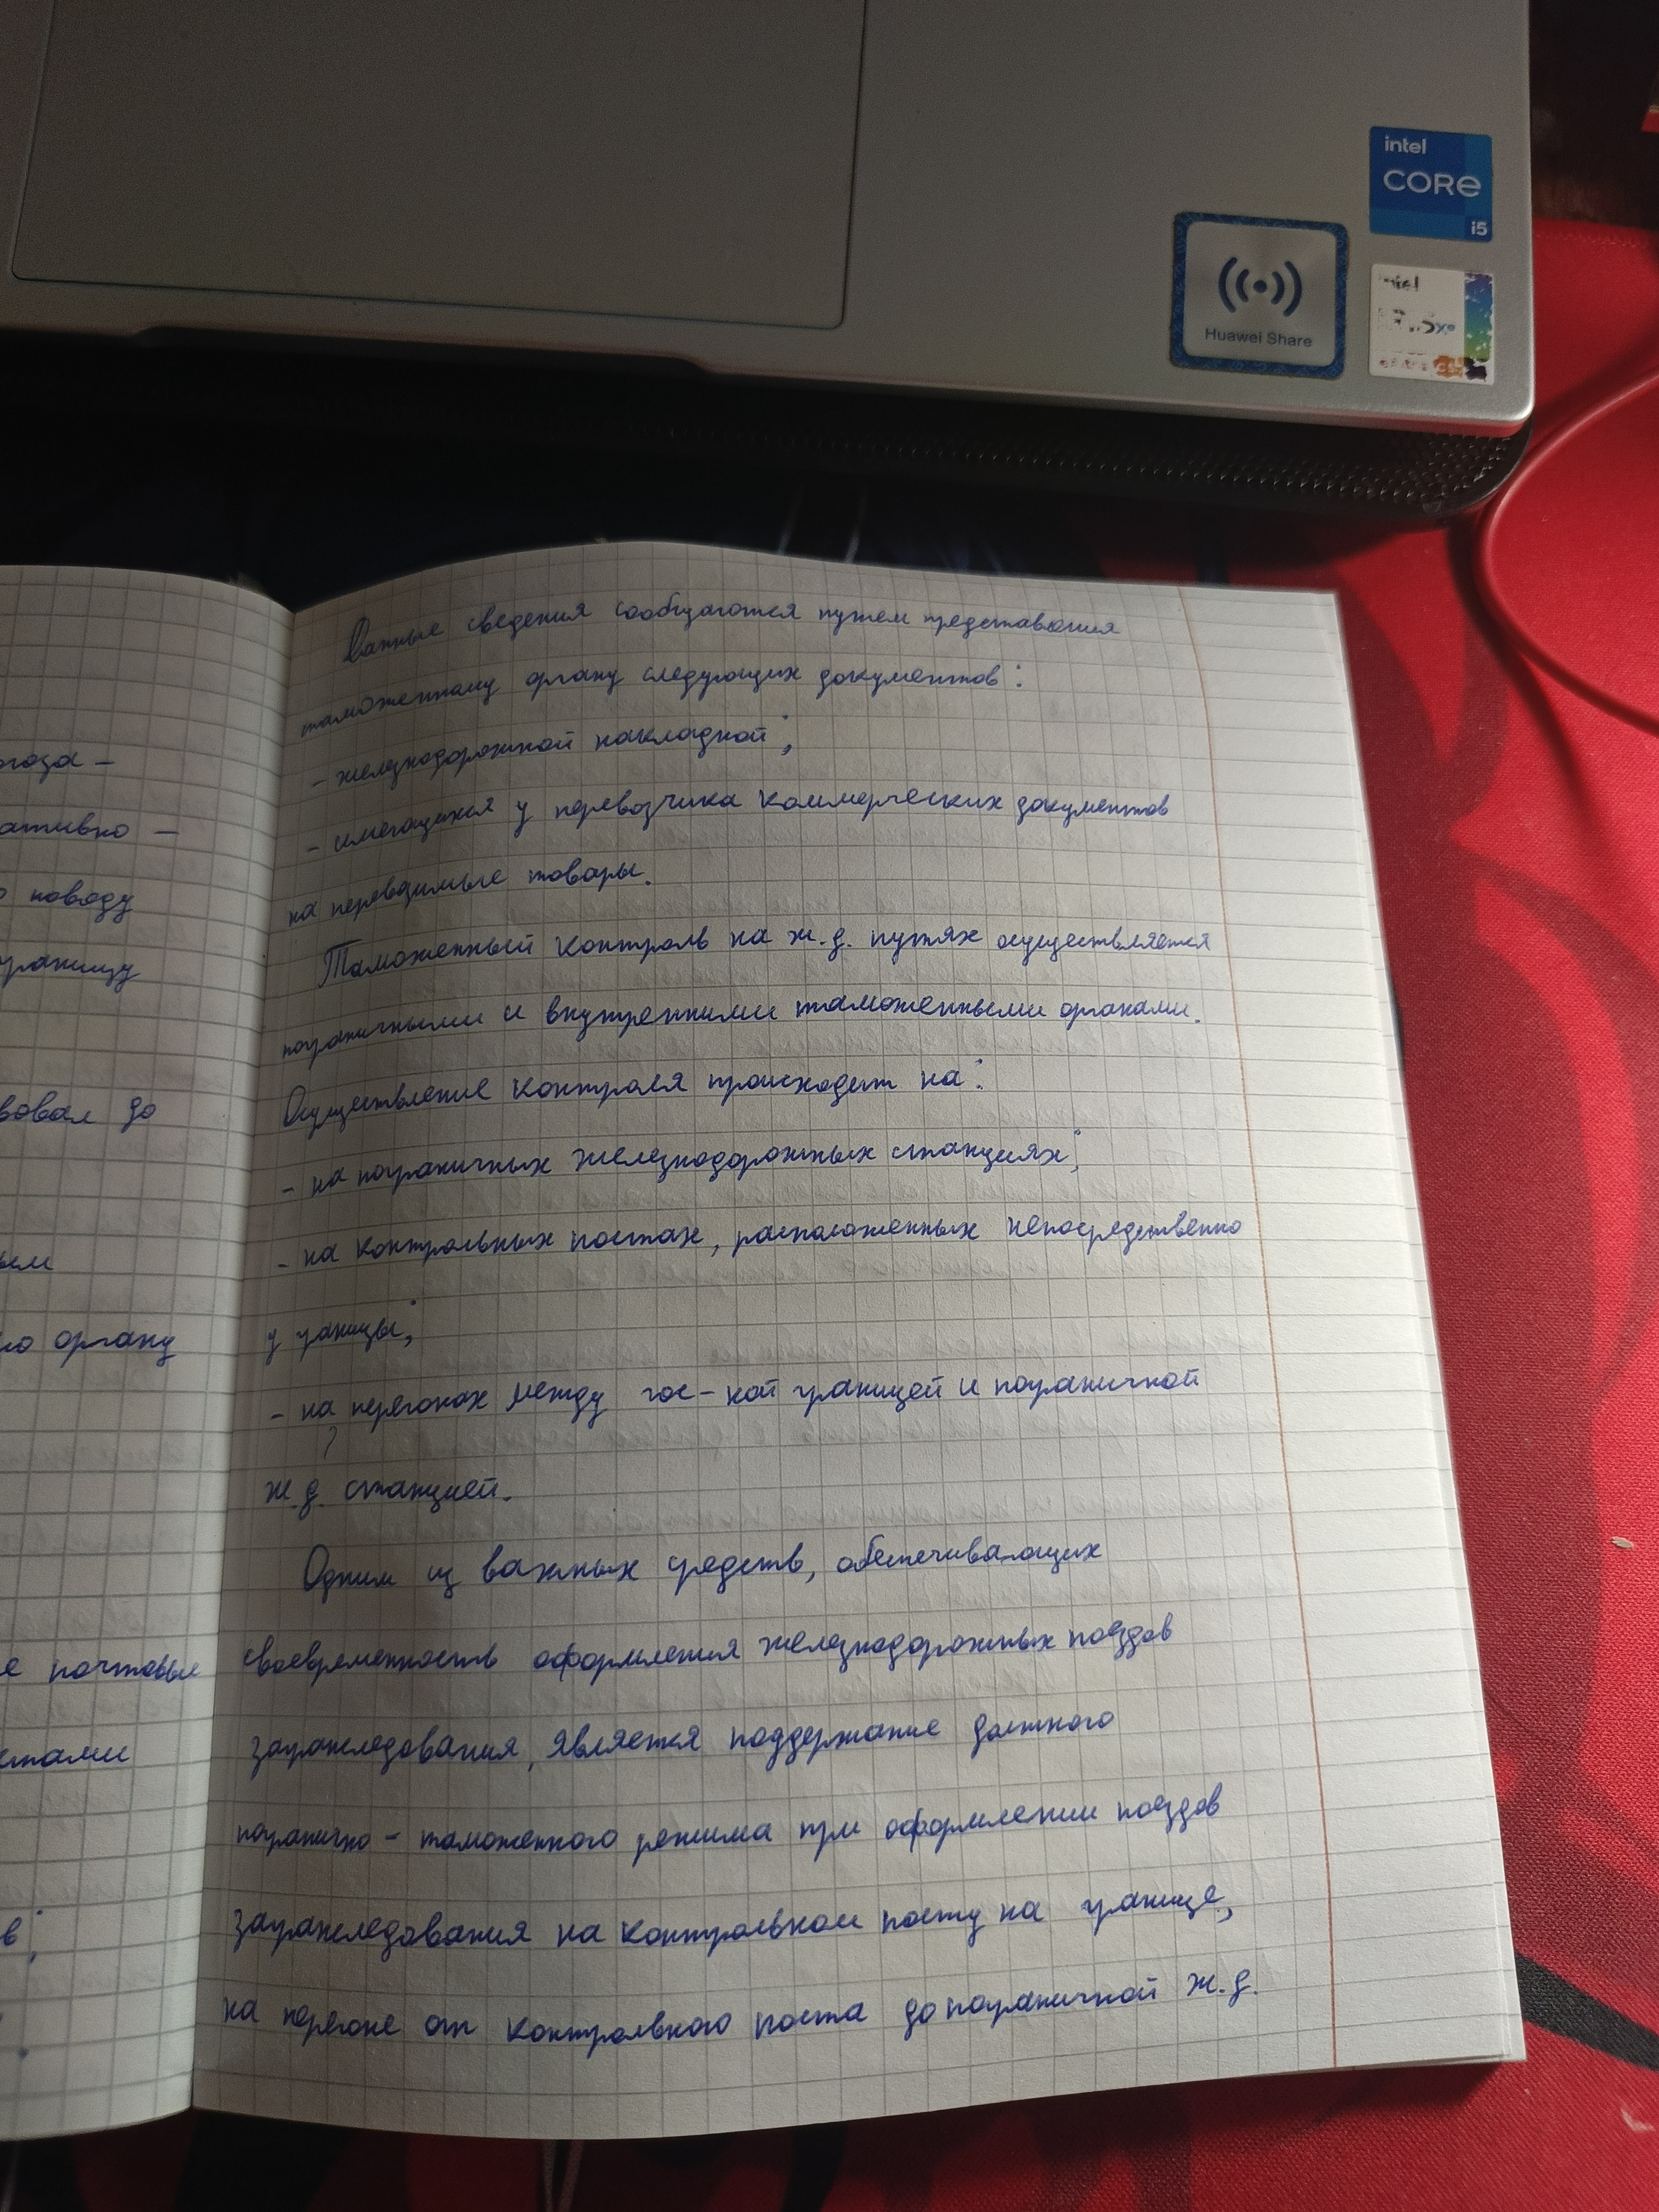 intel
CORe
i5
Huawei Share
intel
Данные сведения сообщаются путем представления
таможенному органу следующих документов:
- железнодорожной накладной;
- имеющихся у перевозчика коммерческих документов
на перевозимые товары.
Таможенный контроль на ж.д. путях осуществляется
пограничными и внутренними таможенными органами.
Осуществление контроля происходит на:
- на пограничных железнодорожных станциях;
- на контрольных постах, расположенных непосредственно
у границы;
- на перегонах между гос-ной границей и пограничной
?
ж.д. станцией.
Одним из важных средств, обеспечивающих
своевременность оформления железнодорожных поездов
загранследования, является поддержание должного
погранично - таможенного режима при оформлении поездов
загранследования на контрольном посту на границе,
на перегоне от контрольного поста до пограничной ж.д.
ативно -
поводу
границу
вовал до
органу
е почтовые